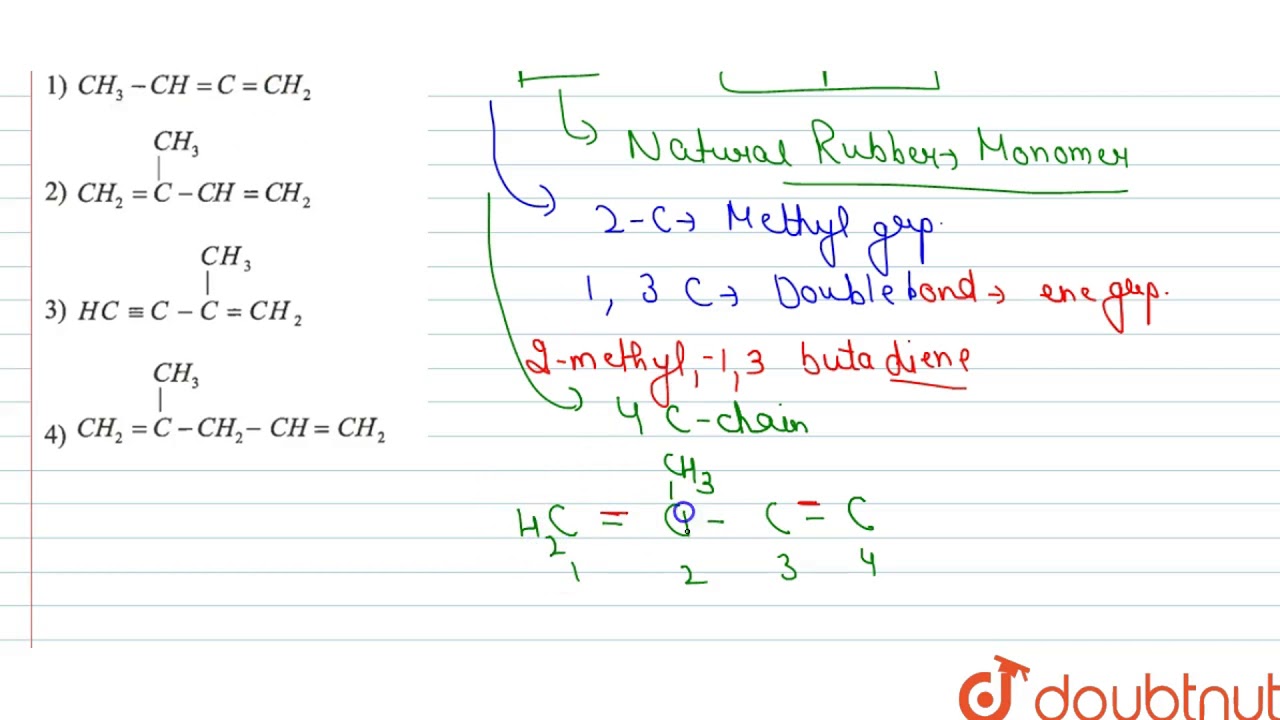 1) CH₃ – CH = C = CH₂
CH₃
|
2) CH₂ = C – CH = CH₂
CH₃
|
3) HC ≡ C – C = CH₂
CH₃
|
4) CH₂ = C – CH₂ – CH = CH₂
Natural Rubber → Monomer
2-C → Methyl grp.
1, 3 C → Double bond → ene grp.
2-methyl,-1,3 butadiene
4 C-chain
CH₃
|
H₂C = C – C = C
1 2 3 4
doubtnut